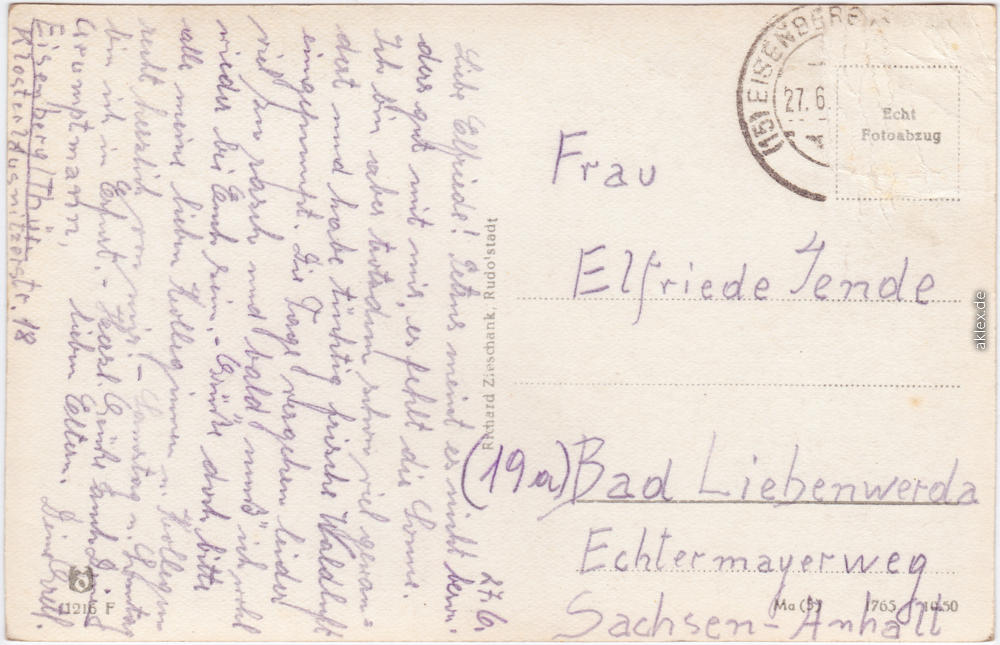 27.6.
Liebe Elfriede! Petrus meint es nicht beson-
ders gut mit mir, es fehlt die Sonne.
Ich bin aber trotzdem schon viel gewan-
dert und habe tüchtig frische Waldluft
eingeatmet. Die Tage vergehen leider
viel zu rasch und bald "muß" ich wohl
wieder bei Euch sein. - Grüße doch bitte
alle meine lieben Kolleginnen u. Kollegen
recht herzlich von mir! - Samstag u. Sonntag
bin ich in Erfurt. - Herzl. Grüße auch Deinen
lieben Eltern. Deine Gretl.
Grumptmann,
Eisenberg/Thür.
Klosterlausnitzerstr. 18
Richard Zieschank, Rudolstadt
11216 F
(15) EISENBERG
27.6.
Echt
Fotoabzug
Frau
Elfriede Jende
(19a) Bad Liebenwerda
Echtermayerweg
Sachsen-Anhalt
Ma (3) 1765 10.50
aklex.de